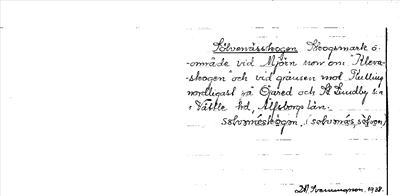 Sölvenässkogen Skogsmark o.
område vid Mjörn norr om "Kleva-
skogen" och vid gränsen mot Kulling
nordligast på Ojared och St Lundby s:n
i Vättle hd, Älfsborgs län.
sølvenésskógen, (
1938.